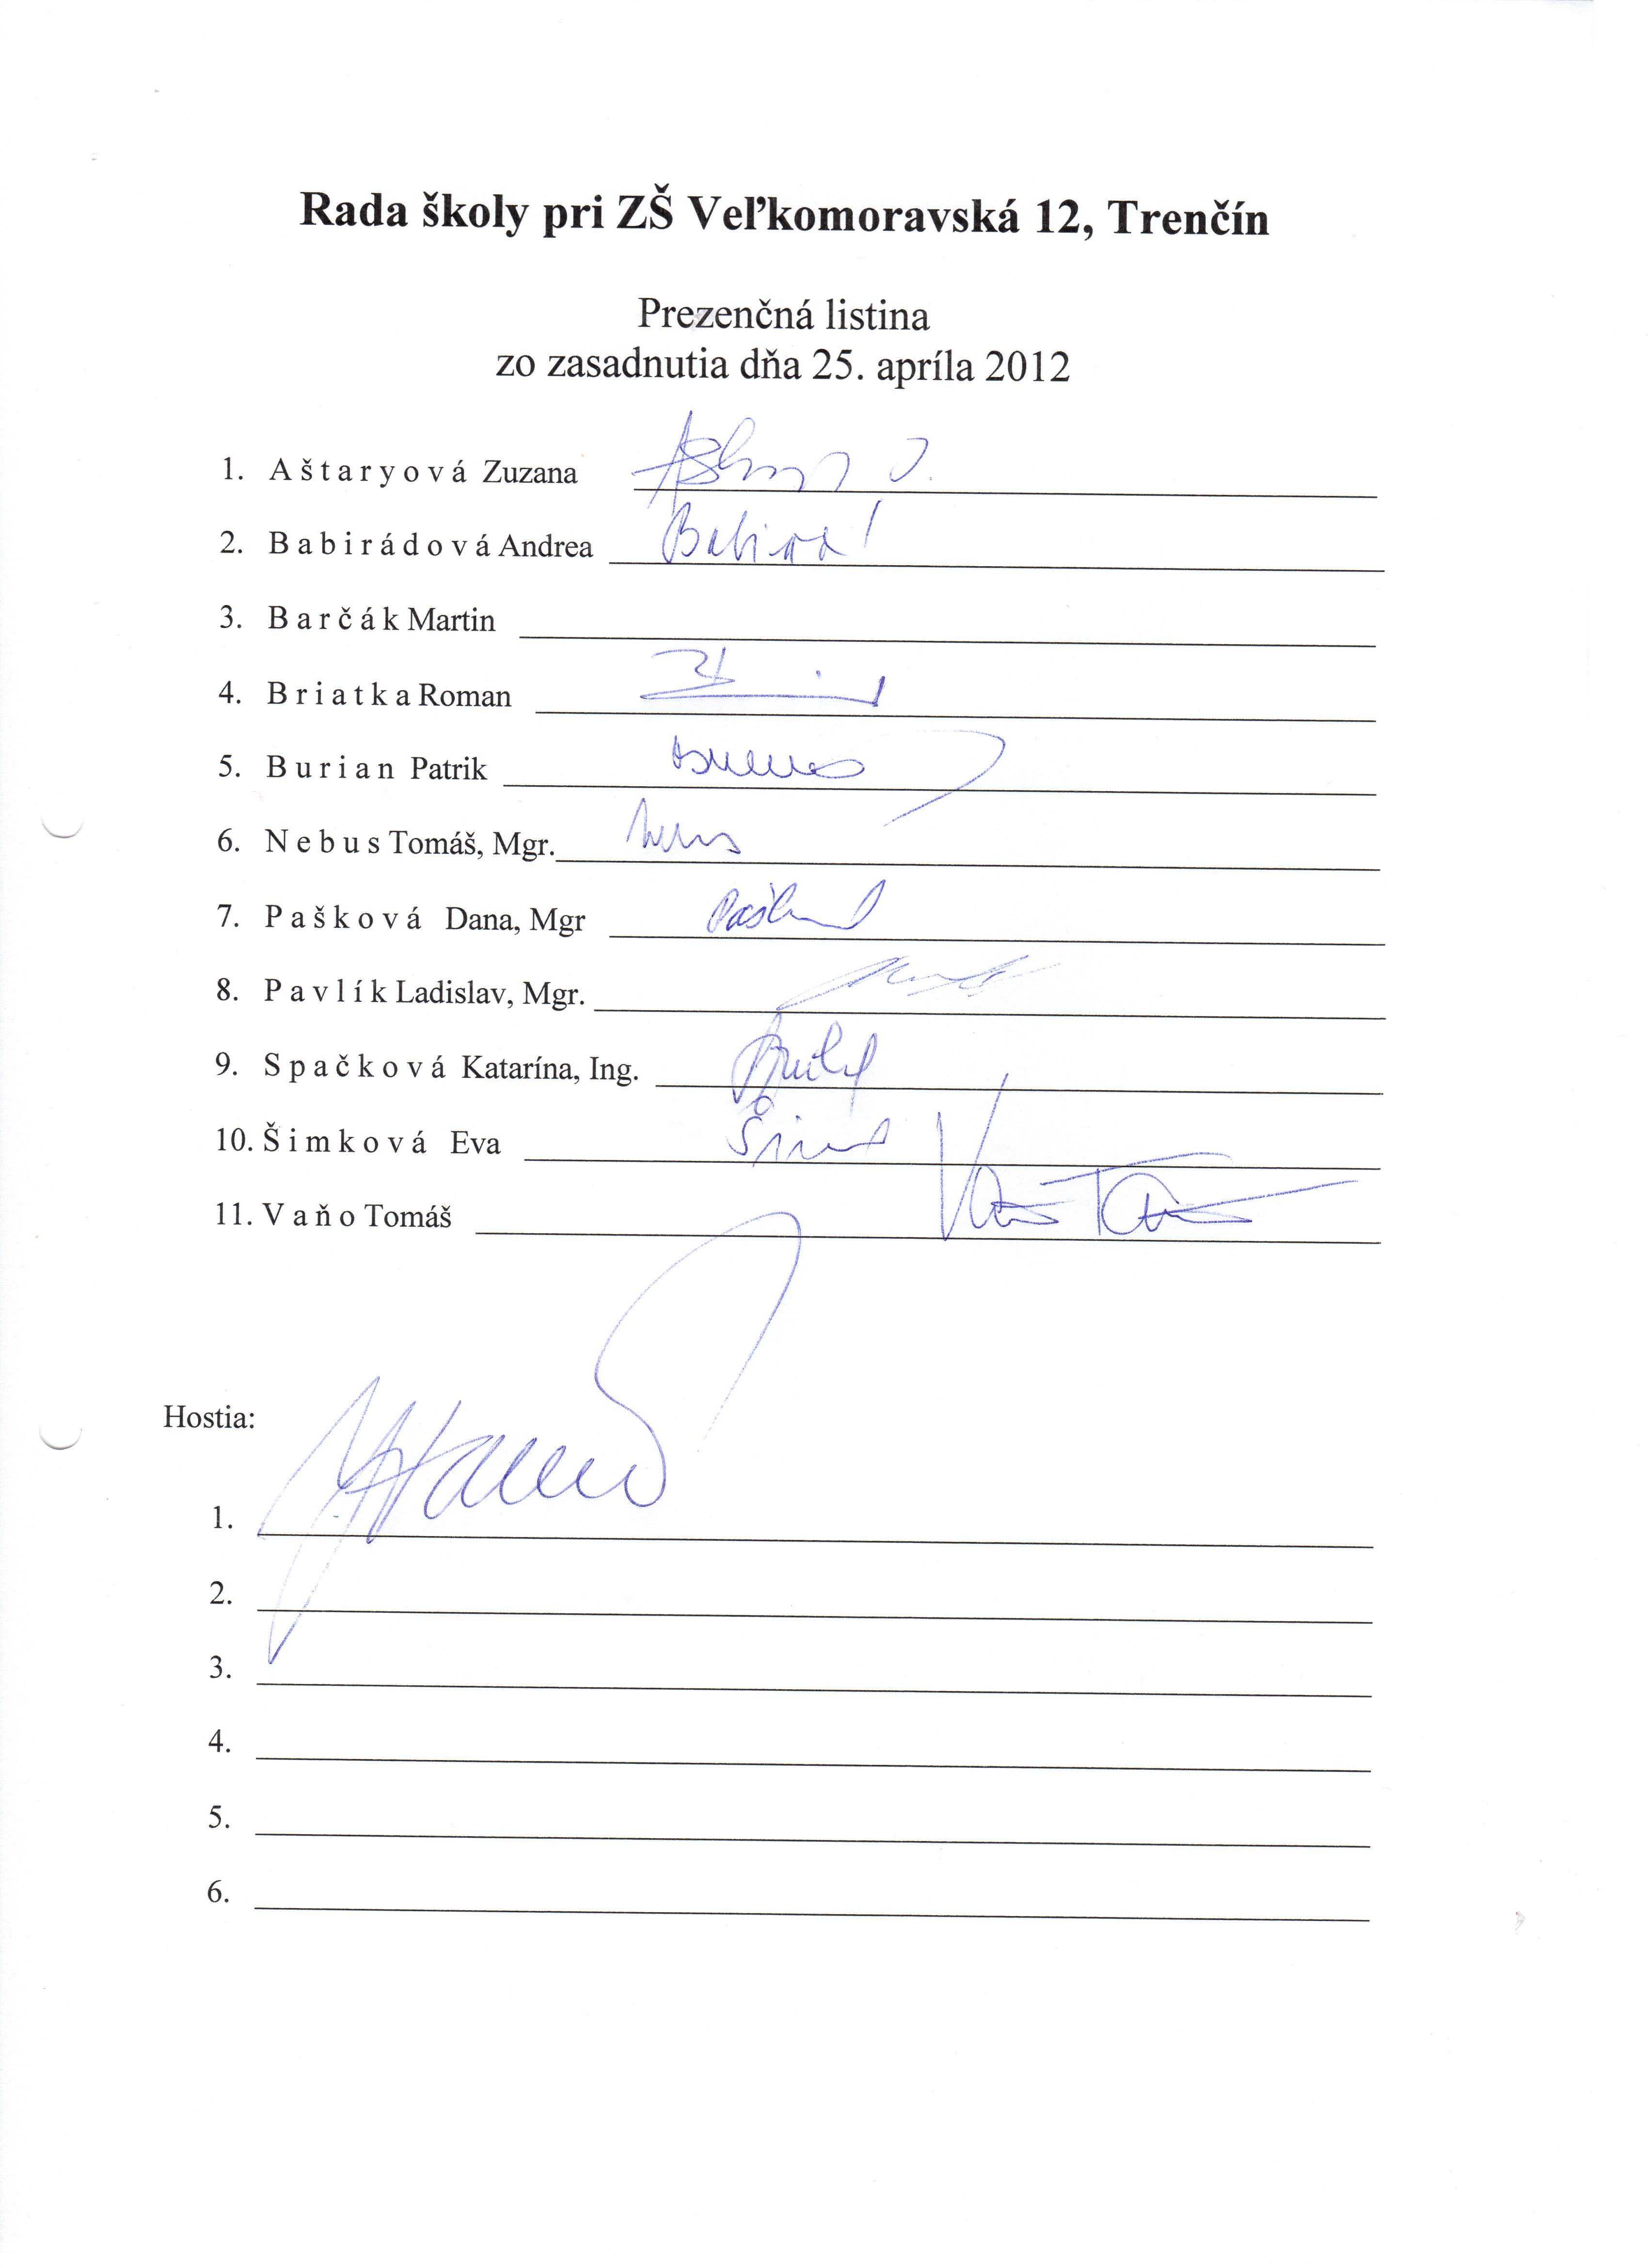 Rada školy pri ZŠ Veľkomoravská 12, Trenčín
Prezenčná listina
zo zasadnutia dňa 25. apríla 2012
1. A š t a r y o v á Zuzana
2. B a b i r á d o v á Andrea
3. B a r č á k Martin
4. B r i a t k a Roman
5. B u r i a n Patrik
6. N e b u s Tomáš, Mgr.
7. P a š k o v á Dana, Mgr
8. P a v l í k Ladislav, Mgr.
9. S p a č k o v á Katarína, Ing.
10. Š i m k o v á Eva
11. V a ň o Tomáš
Hostia:
1.
2.
3.
4.
5.
6.